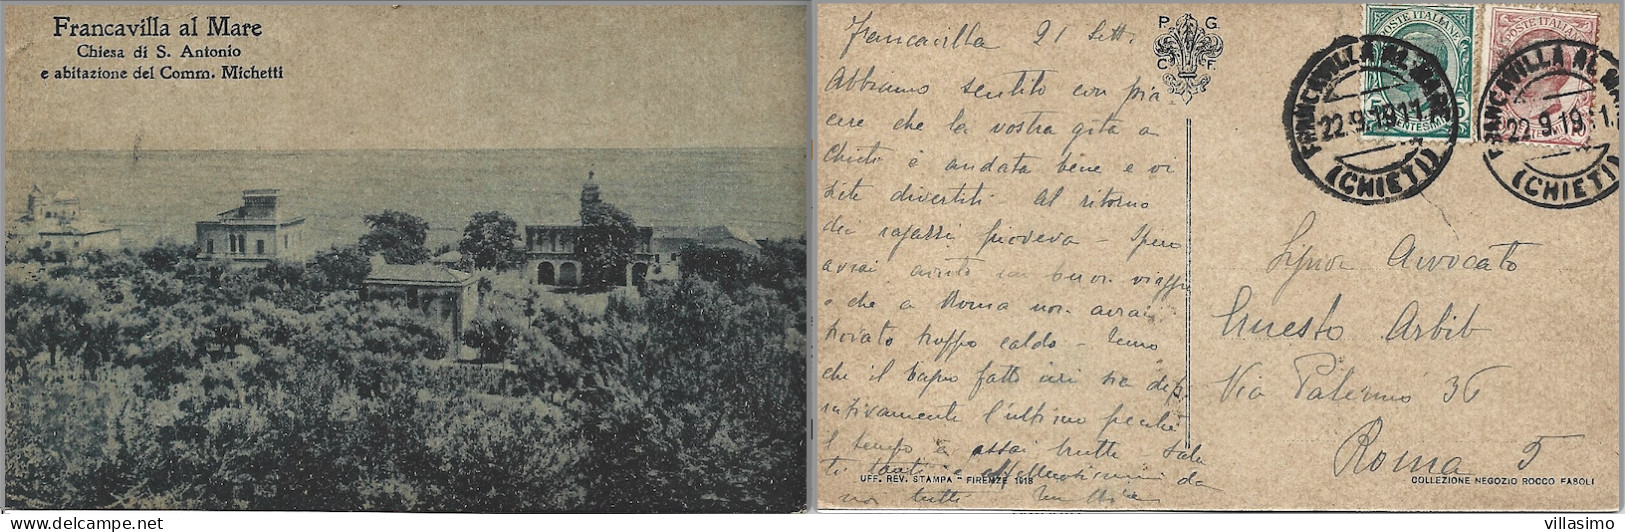 Francavilla al Mare
Chiesa di S. Antonio
e abitazione del Comm. Michetti
Francavilla 21 Sett.
Abbiamo sentito con pia
cere che la vostra gita a
Chieti è andata bene e vi
siete divertiti al ritorno
dei ragazzi pioveva - Spero
avrai avuto un buon viaggio
e che a Roma non avrai
trovato troppo caldo - Temo
che il bagno fatto ieri sia def
initivamente l'ultimo perchè
il tempo è assai brutto
da
noi tutti
P. G.
C. F.
UFF. REV. STAMPA - FIRENZE 1918
POSTE ITALIANE
POSTE ITALIANE
FRANCAVILLA AL MARE
22.9.19 11.
(CHIETI)
FRANCAVILLA AL MA
22.9.19 11.
(CHIETI)
Signor Avvocato
Ernesto Arbib
Via Palermo 36
Roma 5
COLLEZIONE NEGOZIO ROCCO FASOLI
villasimo